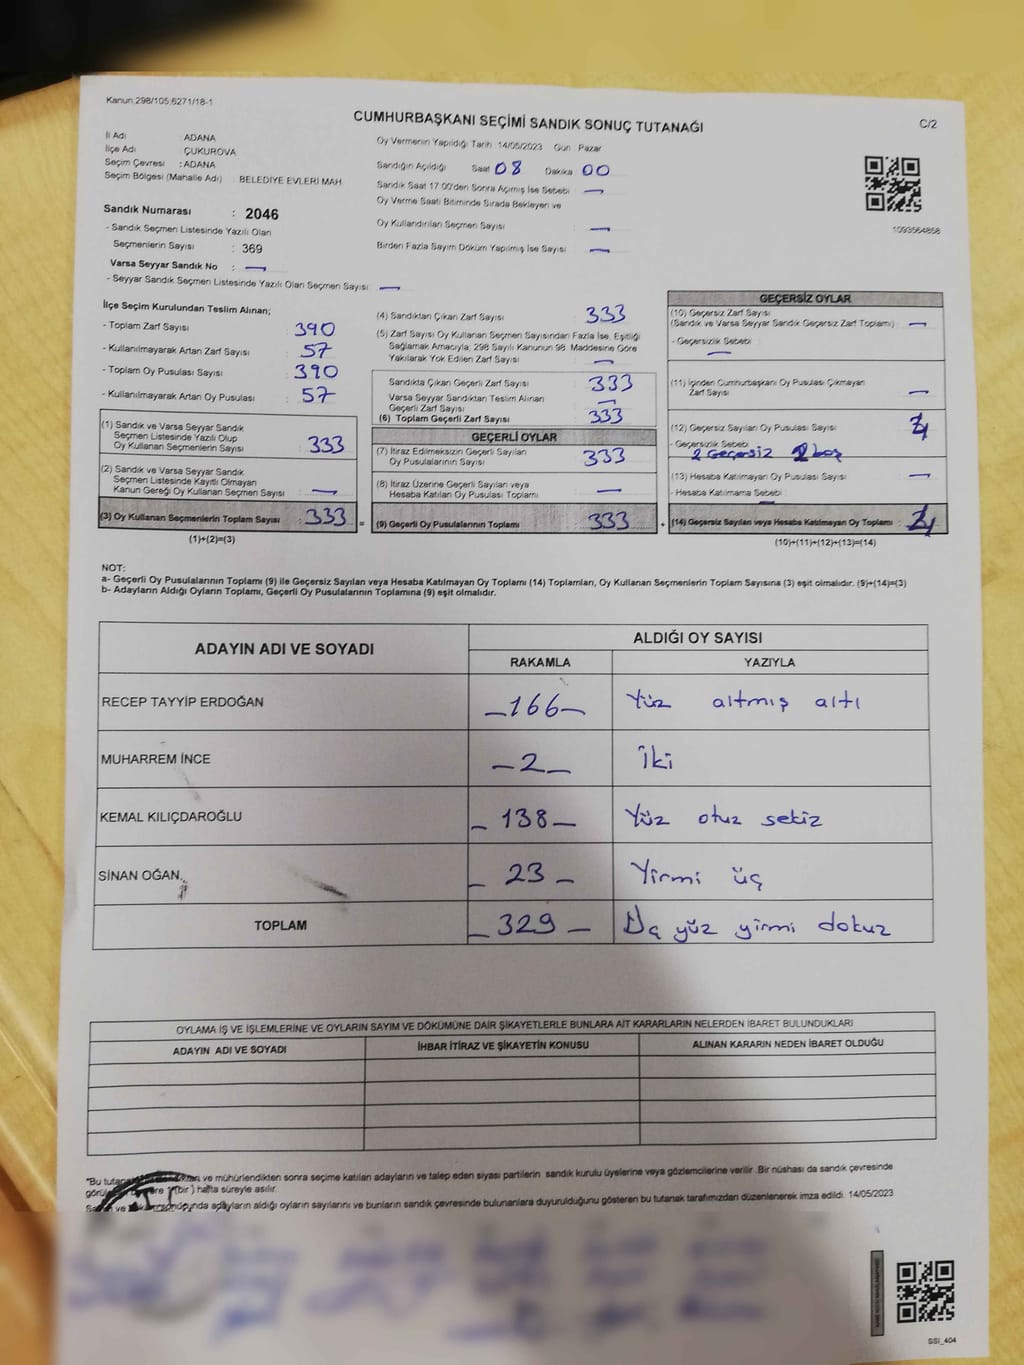 Kanun:298/105,6271/18-1
CUMHURBAŞKANI SEÇİMİ SANDIK SONUÇ TUTANAĞI
C/2
İl Adı ADANA
İlçe Adı ÇUKUROVA
Seçim Çevresi : ADANA
Seçim Bölgesi (Mahalle Adı) BELEDİYE EVLERİ MAH.
Oy Vermenin Yapıldığı Tarih 14/05/2023 Gün : Pazar
Sandığın Açıldığı Saat 08 Dakika 00
Sandık Saat 17.00'den Sonra Açılmış İse Sebebi : —
Oy Verme Saati Bitiminde Sırada Bekleyen ve
Oy Kullandırılan Seçmen Sayısı : —
Birden Fazla Sayım Döküm Yapılmış İse Sayısı : —
1093564858
Sandık Numarası : 2046
- Sandık Seçmen Listesinde Yazılı Olan
Seçmenlerin Sayısı : 369
Varsa Seyyar Sandık No : —
- Seyyar Sandık Seçmen Listesinde Yazılı Olan Seçmen Sayısı : —
İlçe Seçim Kurulundan Teslim Alınan;
- Toplam Zarf Sayısı : 390
- Kullanılmayarak Artan Zarf Sayısı : 57
- Toplam Oy Pusulası Sayısı : 390
- Kullanılmayarak Artan Oy Pusulası : 57
(1) Sandık ve Varsa Seyyar Sandık
Seçmen Listesinde Yazılı Olup
Oy Kullanan Seçmenlerin Sayısı : 333
(2) Sandık ve Varsa Seyyar Sandık
Seçmen Listesinde Kayıtlı Olmayan
Kanun Gereği Oy Kullanan Seçmen Sayısı : —
(3) Oy Kullanan Seçmenlerin Toplam Sayısı : 333 =
(1)+(2)=(3)
(4) Sandıktan Çıkan Zarf Sayısı : 333
(5) Zarf Sayısı Oy Kullanan Seçmen Sayısından Fazla İse, Eşitliği
Sağlamak Amacıyla, 298 Sayılı Kanunun 98. Maddesine Göre
Yakılarak Yok Edilen Zarf Sayısı : —
Sandıkta Çıkan Geçerli Zarf Sayısı : 333
Varsa Seyyar Sandıktan Teslim Alınan
Geçerli Zarf Sayısı : —
(6) Toplam Geçerli Zarf Sayısı : 333
GEÇERLİ OYLAR
(7) İtiraz Edilmeksizin Geçerli Sayılan
Oy Pusulalarının Sayısı : 333
(8) İtiraz Üzerine Geçerli Sayılan veya
Hesaba Katılan Oy Pusulası Toplamı : —
(9) Geçerli Oy Pusulalarının Toplamı : 333 +
GEÇERSİZ OYLAR
(10) Geçersiz Zarf Sayısı
(Sandık ve Varsa Seyyar Sandık Geçersiz Zarf Toplamı) : —
- Geçersizlik Sebebi : —
(11) İçinden Cumhurbaşkanı Oy Pusulası Çıkmayan
Zarf Sayısı : —
(12) Geçersiz Sayılan Oy Pusulası Sayısı :
- Geçersizlik Sebebi :
2 Geçersiz 2 boş
(13) Hesaba Katılmayan Oy Pusulası Sayısı : —
- Hesaba Katılmama Sebebi : —
(14) Geçersiz Sayılan veya Hesaba Katılmayan Oy Toplamı :
(10)+(11)+(12)+(13)=(14)
NOT:
a- Geçerli Oy Pusulalarının Toplamı (9) ile Geçersiz Sayılan veya Hesaba Katılmayan Oy Toplamı (14) Toplamları, Oy Kullanan Seçmenlerin Toplam Sayısına (3) eşit olmalıdır. (9)+(14)=(3)
b- Adayların Aldığı Oyların Toplamı, Geçerli Oy Pusulalarının Toplamına (9) eşit olmalıdır.
ADAYIN ADI VE SOYADI ALDIĞI OY SAYISI
RAKAMLA YAZIYLA
RECEP TAYYİP ERDOĞAN —166— Yüz altmış altı
MUHARREM İNCE —2— İki
KEMAL KILIÇDAROĞLU —138— Yüz otuz sekiz
SİNAN OĞAN —23— Yirmi üç
TOPLAM —329— Üç yüz yirmi dokuz
OYLAMA İŞ VE İŞLEMLERİNE VE OYLARIN SAYIM VE DÖKÜMÜNE DAİR ŞİKAYETLERLE BUNLARA AİT KARARLARIN NELERDEN İBARET BULUNDUKLARI
ADAYIN ADI VE SOYADI İHBAR İTİRAZ VE ŞİKAYETİN KONUSU ALINAN KARARIN NEDEN İBARET OLDUĞU
*Bu ve mühürlendikten sonra seçime katılan adayların ve talep eden siyasi partilerin sandık kurulu üyelerine veya gözlemcilerine verilir. Bir nüshası da sandık çevresinde
(bir) hafta süreyle asılır.
adayların aldığı oyların sayılarını ve bunların sandık çevresinde bulunanlara duyurulduğunu gösteren bu tutanak tarafımızdan düzenlenerek imza edildi. 14/05/2023
SSİ_404